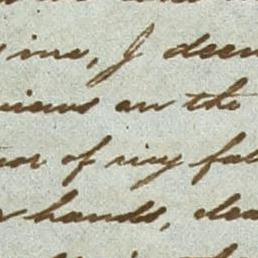 me, I deem
views on the
of my fat
hands, clea